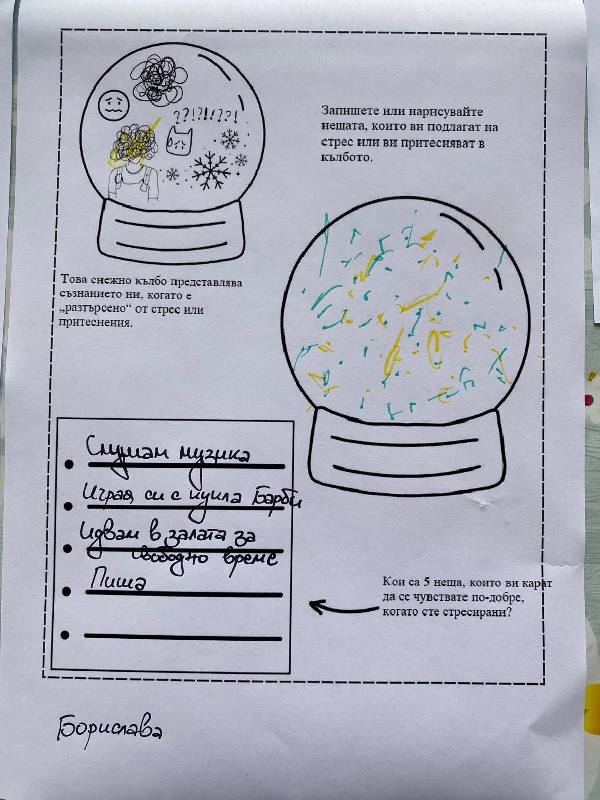 ??!?!/??!
Запишете или нарисувайте
нещата, които ви подлагат на
стрес или ви притесняват в
кълбото.
Това снежно кълбо представлява
съзнанието ни, когато е
„разтърсено“ от стрес или
притеснения.
Слушам музика
Играя си с кукла Барби
Идвам в залата за
свободно време
Пиша
Кои са 5 неща, които ви карат
да се чувствате по-добре,
когато сте стресирани?
Борислава